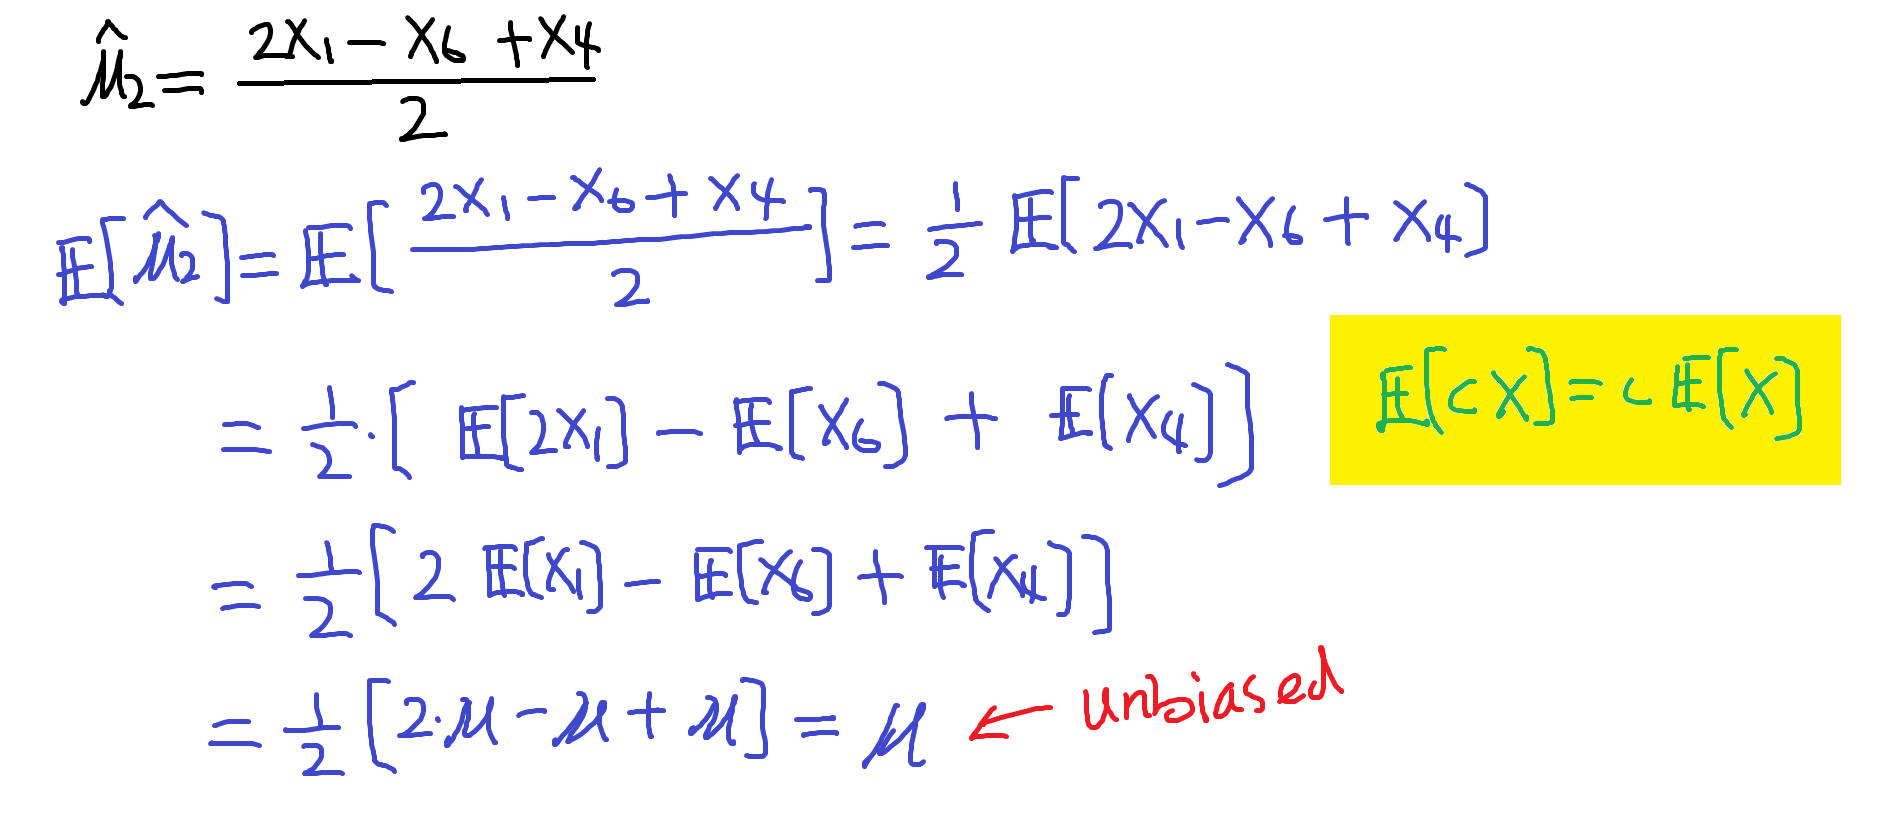 μ̂₂ = (2X₁ − X₆ + X₄) / 2
𝔼[μ̂₂] = 𝔼[(2X₁ − X₆ + X₄) / 2] = 1/2 𝔼[2X₁ − X₆ + X₄]
= 1/2 · [𝔼[2X₁] − 𝔼[X₆] + 𝔼[X₄]]
𝔼[cX] = c 𝔼[X]
= 1/2 [2 𝔼[X₁] − 𝔼[X₆] + 𝔼[X₄]]
= 1/2 [2·μ − μ + μ] = μ ← unbiased